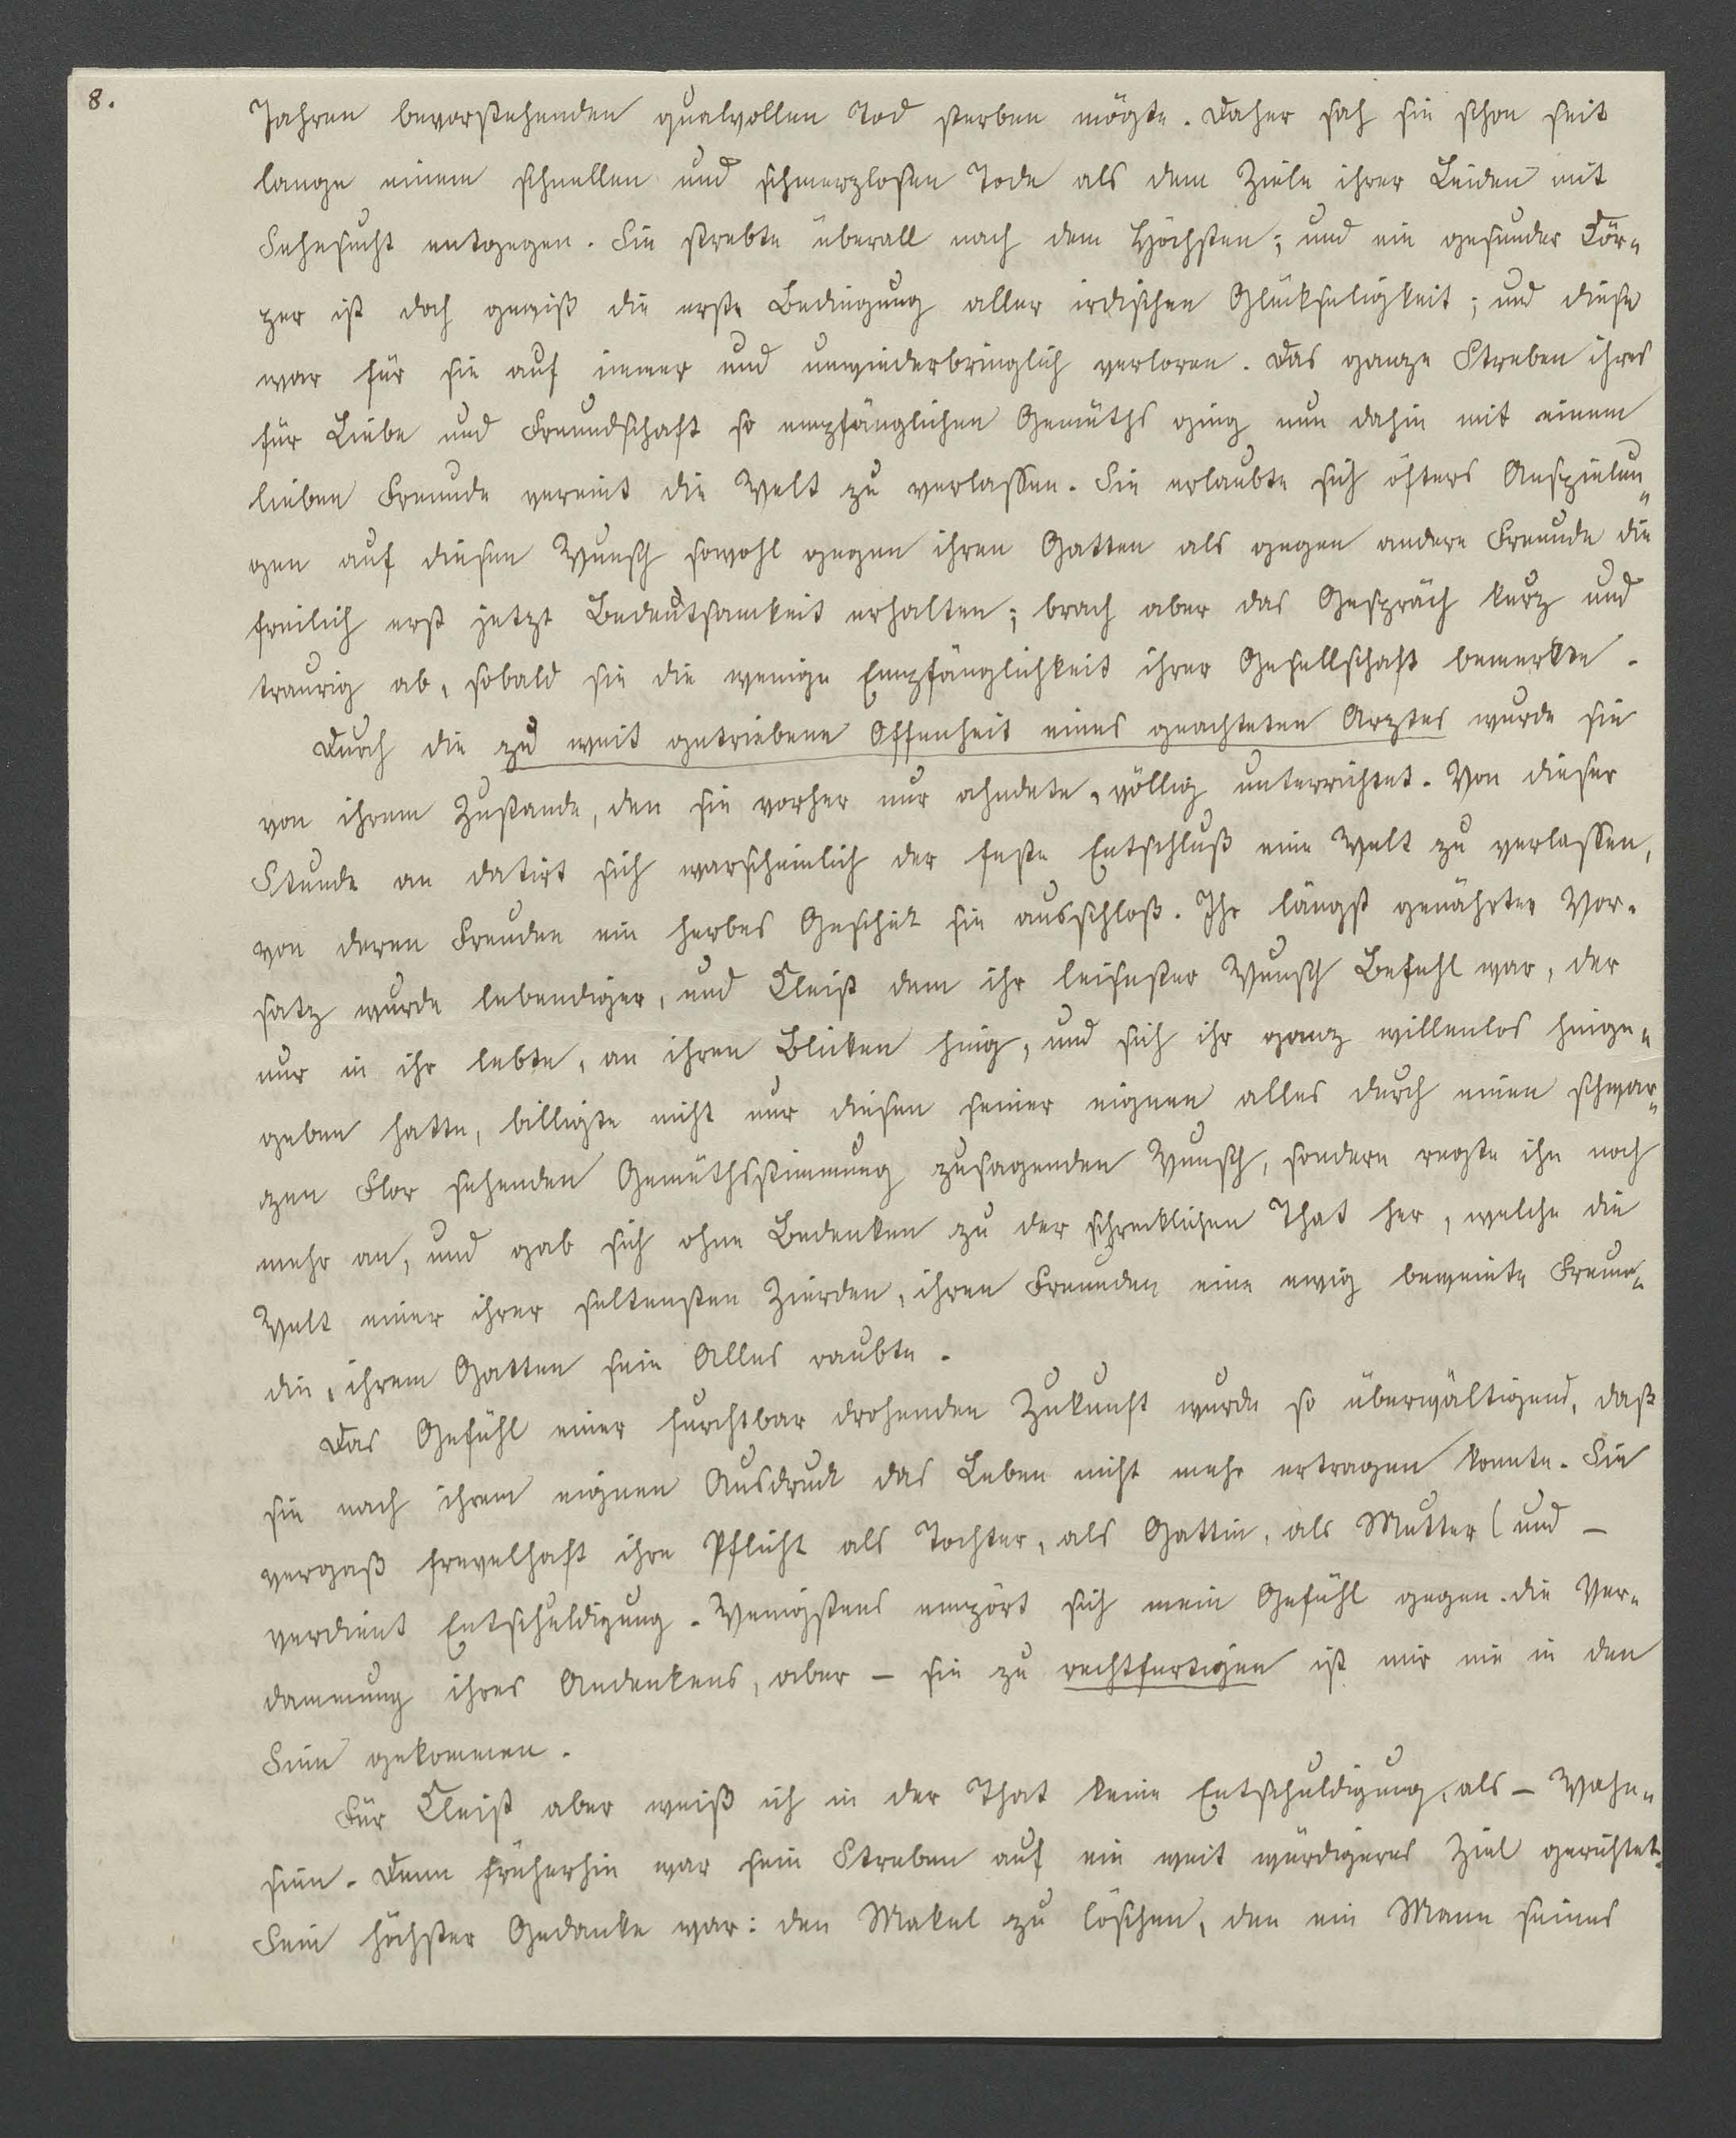 8.
Jahren bevorstehenden qualvollen Tod sterben mögte. Daher sah sie schon seit
lange einem schnellen und schmerzlosen Tode als dem Ziele ihrer Leiden mit
Sehnsucht entgegen. Sie strebte überall nach dem Höchsten; und ein gesunder Kör-
per ist doch gewiß die erste Bedingung aller irdischen Glükseligkeit; und diese
war für sie auf immer und unwiederbringlich verloren. Das ganze Streben ihres
für Liebe und Freundschaft so empfänglichen Gemüths ging nun dahin mit einem
lieben Freunde vereint die Welt zu verlassen. Sie erlaubte sich öfters Anspielun-
gen auf diesen Wunsch sowohl gegen ihren Gatten als gegen andere Freunde die
freilich erst jetzt Bedeutsamkeit erhalten; brach aber das Gespräch kurz und
traurig ab, sobald sie die wenige Empfänglichkeit ihrer Gesellschaft bemerkte.
Durch die zu weit getriebene Offenheit eines geachteten Arztes wurde sie
von ihrem Zustande, den sie vorher nur ahndete, völlig unterrichtet. Von dieser
Stunde an datirt sich warscheinlich der feste Entschluß eine Welt zu verlassen,
von deren Freuden ein herbes Geschik sie ausschloß. Ihr längst genährter Vor-
satz wurde lebendiger, und Kleist dem ihr leisester Wunsch Befehl war, der
nur in ihr lebte, an ihren Bliken hing, und sich ihr ganz willenlos hinge-
geben hatte, billigte nicht nur diesen seiner eignen alles durch einen schwar-
zen Flor sehenden Gemüthsstimmung zusagenden Wunsch, sondern regte ihn noch
mehr an, und gab sich ohne Bedenken zu der schrecklichen That her, welche die
Welt einer ihrer seltensten Zierden, ihren Freunden eine ewig beweinte Freun-
din, ihrem Gatten sein Alles raubte.
Das Gefühl einer furchtbar drohenden Zukunft wurde so überwältigend, daß
sie nach ihrem eignen Ausdruk das Leben nicht mehr ertragen konnte. Sie
vergaß frevelhaft ihre Pflicht als Tochter, als Gattin, als Mutter (und –
verdient Entschuldigung. Wenigstens empört sich mein Gefühl gegen die Ver-
dammung ihres Andenkens, aber – sie zu rechtfertigen ist mir nie in den
Sinn gekommen.
Für Kleist aber weiß ich in der That keine Entschuldigung, als – Wahn-
sinn. Denn früherhin war sein Streben auf ein weit würdigeres Ziel gerichtet.
Sein höchster Gedanke war: den Makel zu löschen, den ein Mann seines